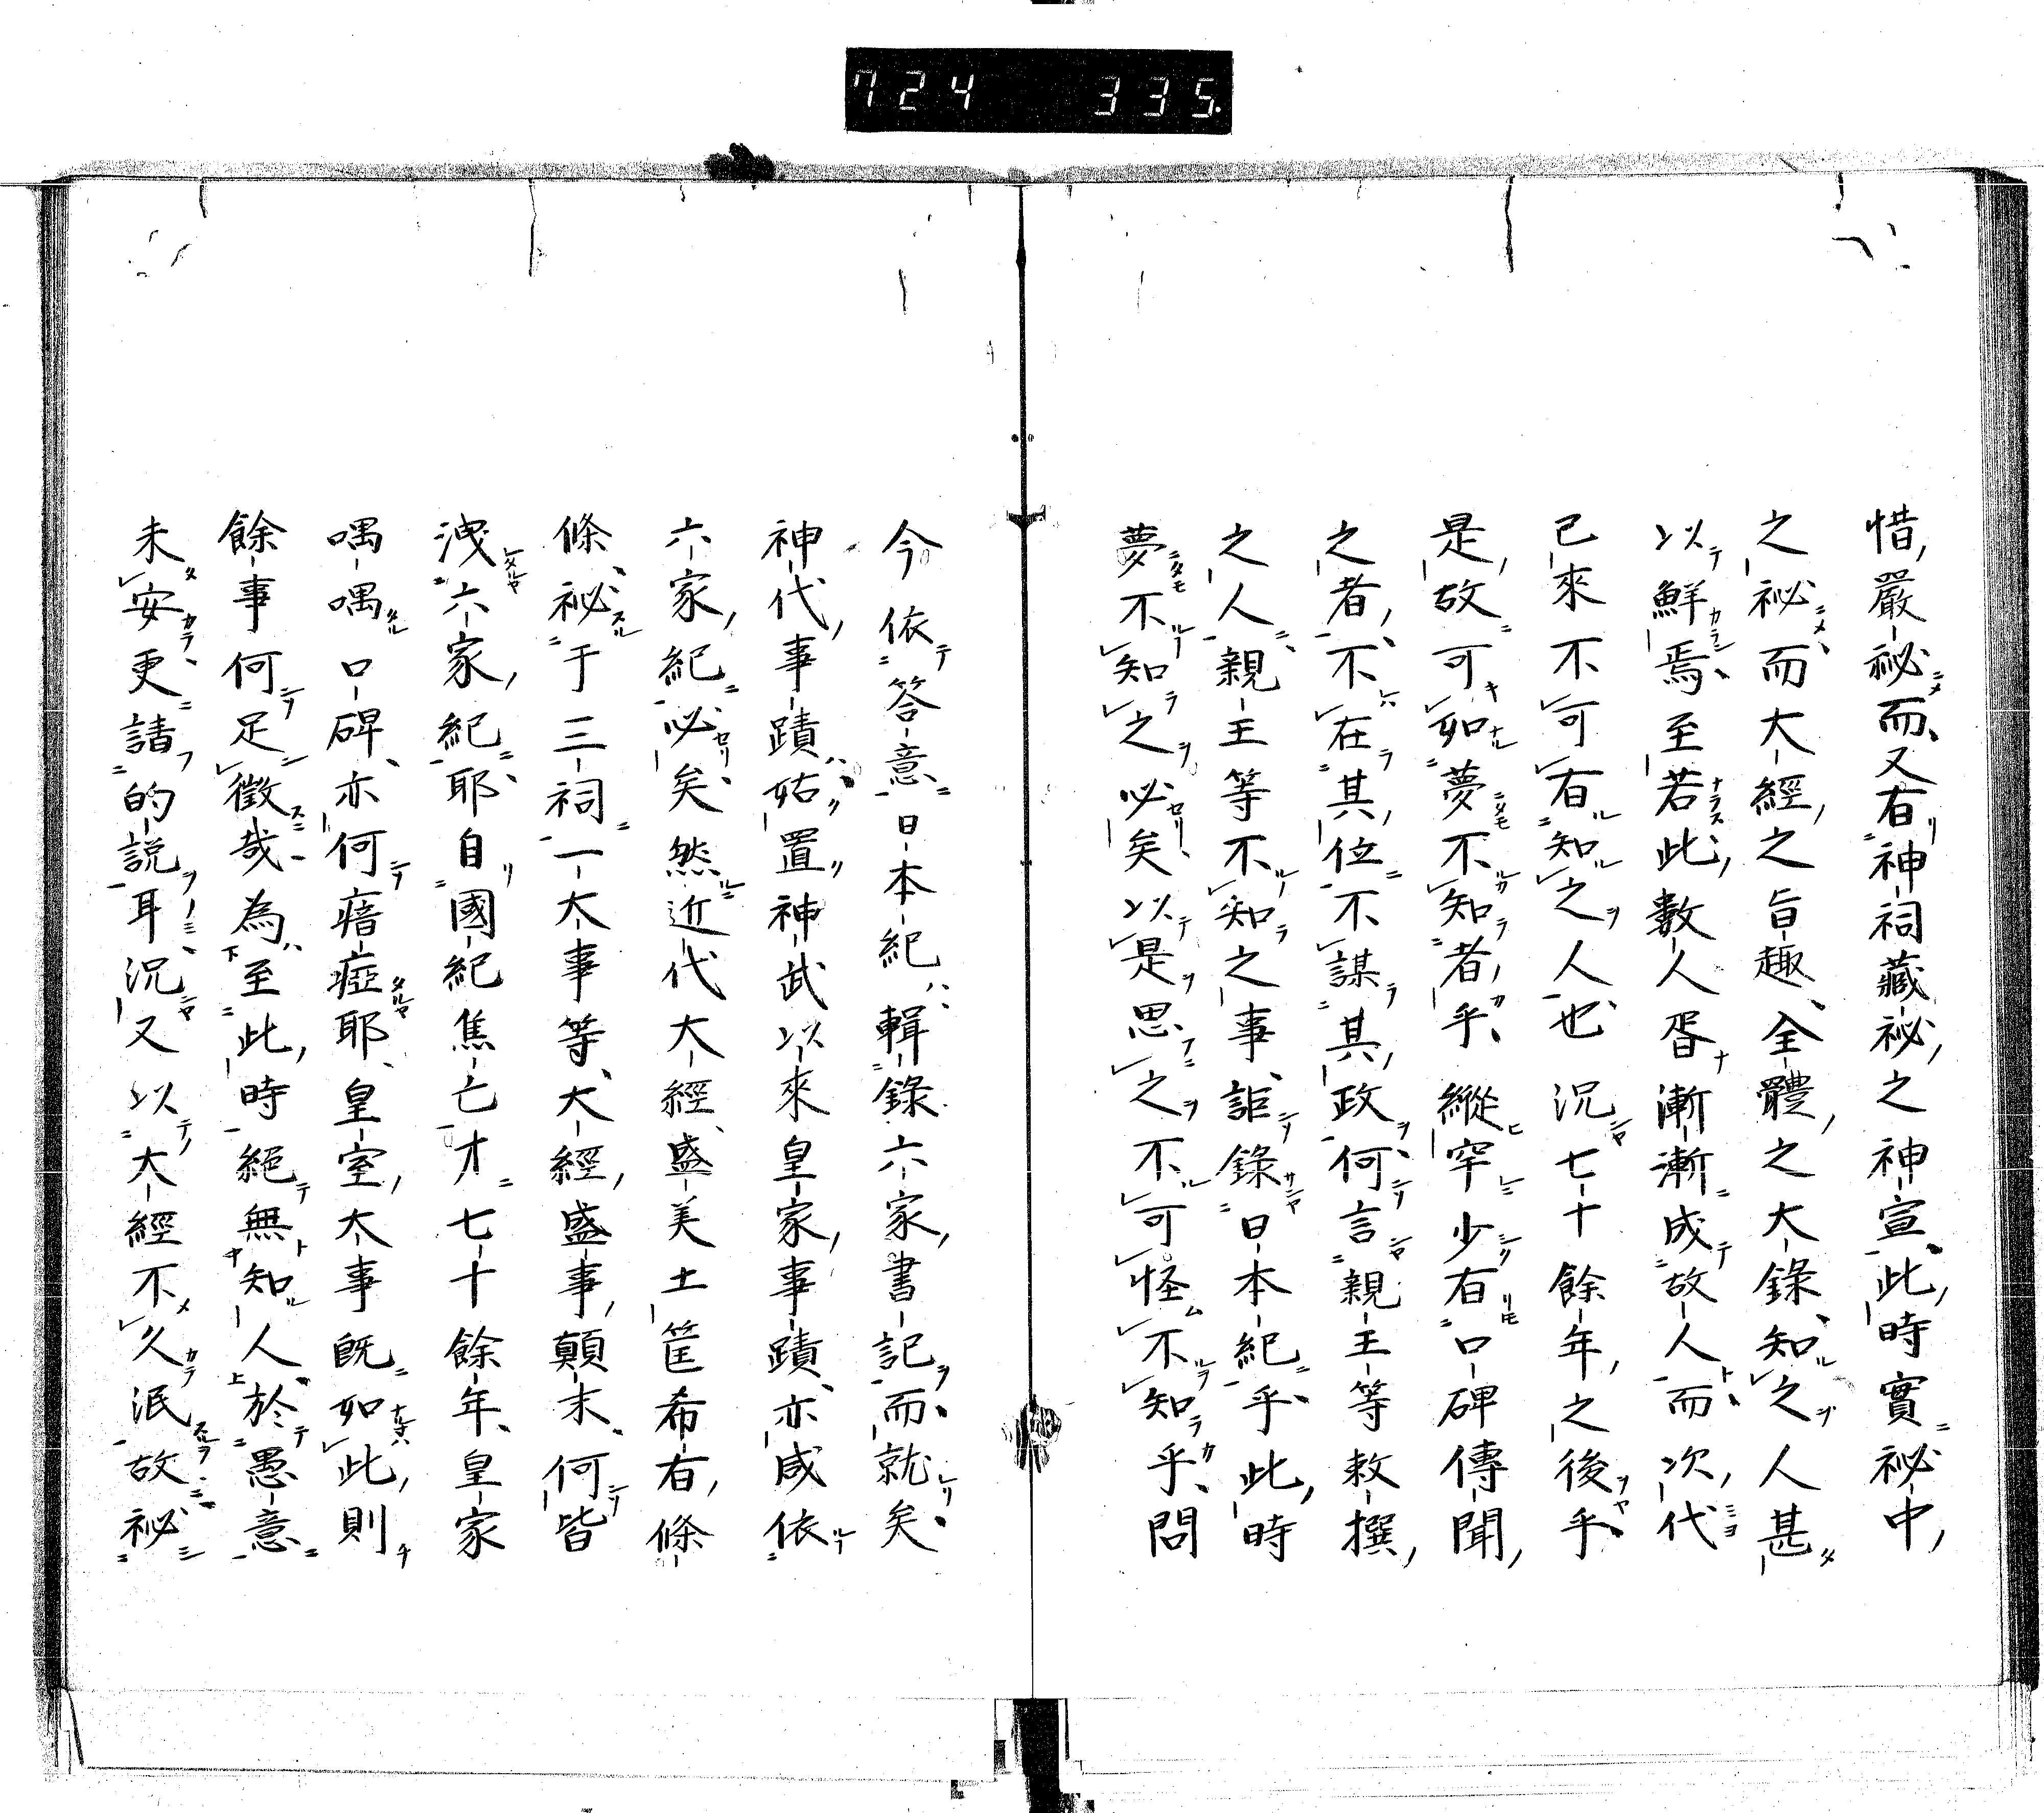 724 335
惜嚴祕而又有神祠藏祕之神宣此時實祕中
之祕而大經之旨趣全體之大錄知之人甚
以鮮焉至若此數人胥漸漸成故人而次代
已來不可有知之人也況七十餘年之後乎
是故可如夢不知者乎縱罕少有口碑傳聞
之者不在其位不謀其政何言親王等敕撰
之人親王等不知之事詎錄日本紀乎此時
夢不知之必矣以是思之不可怪不知乎問
今依答意日本紀輯錄六家書記而就矣
神代事蹟姑置神武以來皇家事蹟亦咸依
六家紀必矣然近代大經盛美土筐希有條
條祕于三祠一大事等大經盛事顛末何皆
洩六家紀耶自國紀焦亡才七十餘年皇家
喁喁口碑亦何瘖瘂耶皇室大事既如此則
餘事何足徵哉為至此時絕無知人於愚意
未安更請的說耳況又以大經不久泯故祕